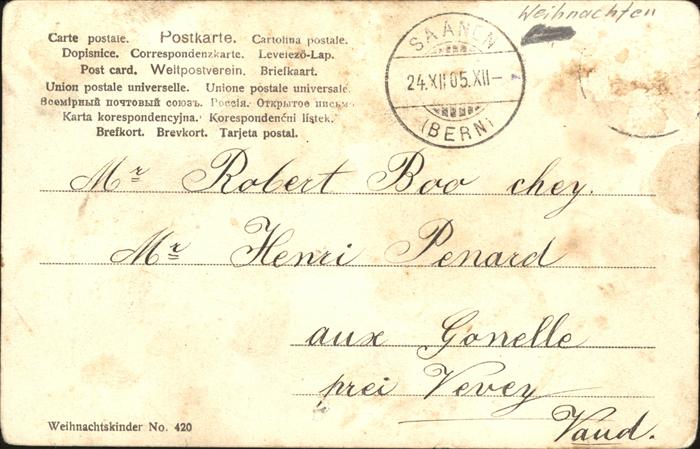 Weihnachten
Carte postale. Postkarte. Cartolina postale.
Dopisnice. Correspondenzkarte. Levelező-Lap.
Post card. Weltpostverein. Briefkaart.
Union postale universelle. Unione postale universale.
Всемірный почтовый союзъ. Россія. Открытое письмо.
Karta korespondencyjna. Korespondenční lístek.
Brefkort. Brevkort. Tarjeta postal.
SAANEN
24.XII 05.XII–
(BERN)
Mr Robert Boo chey.
Mr Henri Penard
aux Gonelle
prei Vevey
Vaud.
Weihnachtskinder No. 420